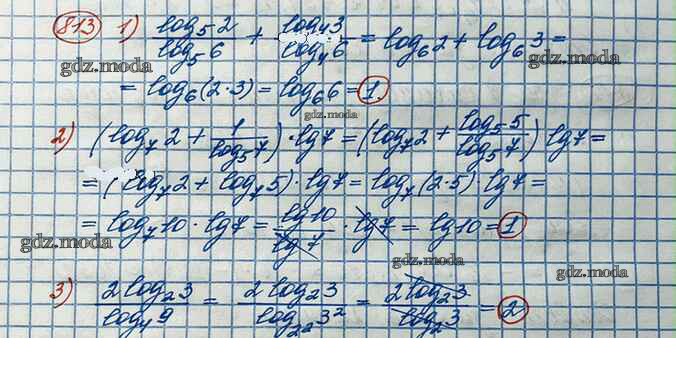 813 1) log₅2/log₅6 + log₄3/log₄6 = log₆2 + log₆3 =
gdz.moda gdz.moda
= log₆(2·3) = log₆6 = 1.
gdz.moda
2) (log₇2 + 1/log₅7)·lg7 = (log₇2 + log₅5/log₅7) lg7 =
= (log₇2 + log₇5)·lg7 = log₇(2·5) lg7 =
= log₇10·lg7 = lg10/lg7 · lg7 = lg10 = 1
gdz.moda
gdz.moda
gdz.moda
3) 2log₂3/log₄9 = 2log₂3/log₂²3² = 2log₂3/log₂3 = 2